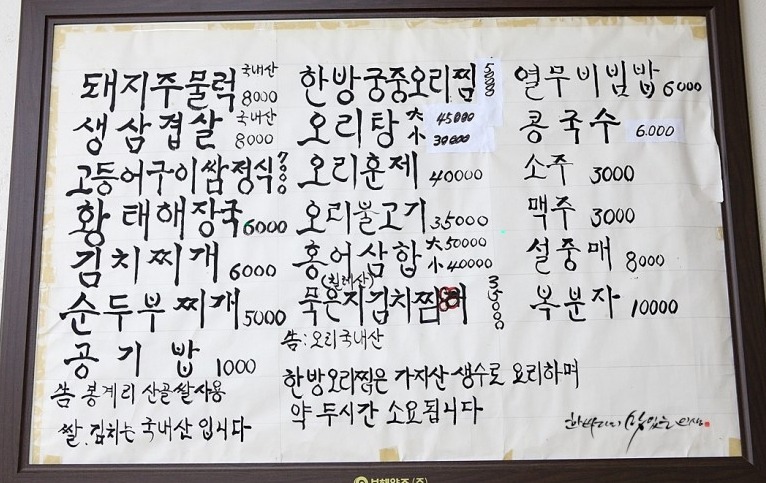 돼지주물럭 국내산 8000
생삼겹살 국내산 8000
고등어구이쌈정식 7000
황태해장국 6000
김치찌개 6000
순두부찌개 5000
공기밥 1000
쌀 봉계리 산골쌀사용
쌀.김치는 국내산 입니다
한방궁중오리찜 50000
오리탕 大 45000
小 30000
오리훈제 40000
오리불고기 35000
홍어삼합 大 50000
小 40000
(칠레산)
묵은지김치찜 35000
오리국내산
한방오리찜은 가지산 생수로 요리하며
약 두시간 소요됩니다
열무비빔밥 6000
콩국수 6.000
소주 3000
맥주 3000
설중매 8000
복분자 10000
맛있는
보해양조(주)